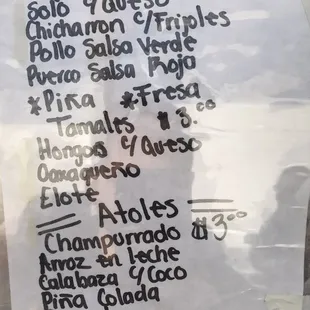 Solo y Queso
Chicharron c/Frijoles
Pollo Salsa Verde
Puerco Salsa Roja
*Piña *Fresa
Tamales $3.00
Hongos c/Queso
Oaxaqueño
Elote
Atoles
Champurrado $3.00
Arroz en leche
Calabaza c/Coco
Piña Colada